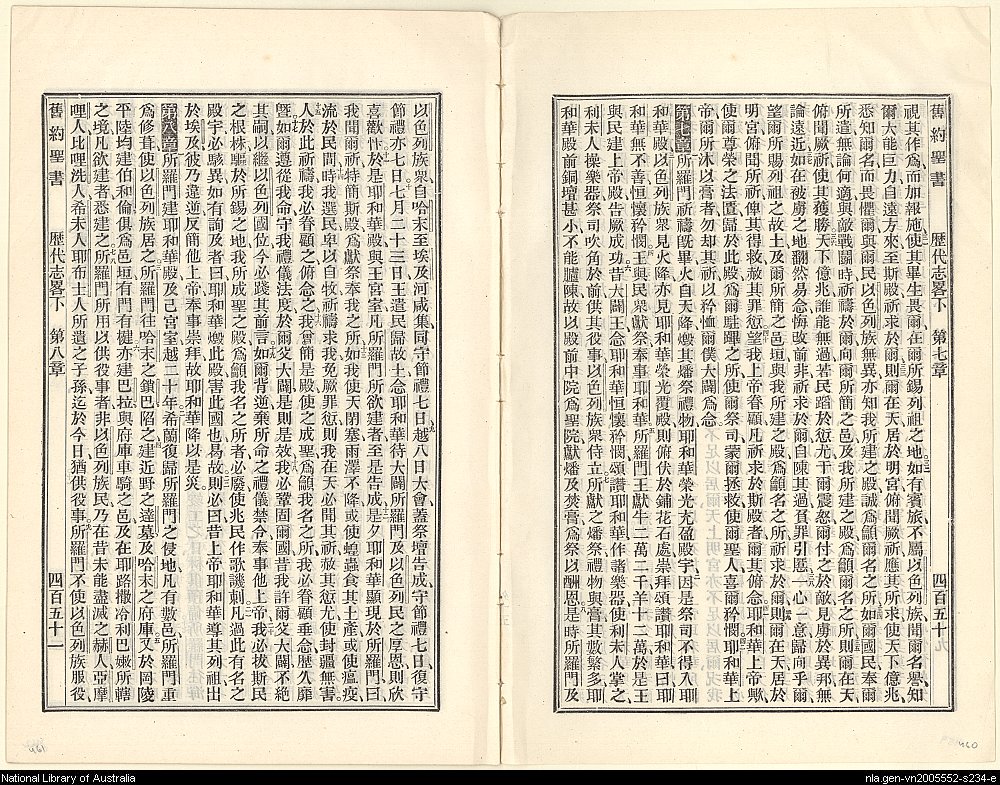 舊約聖書 歷代志畧下 第七章 四百五十九
視其作爲而加報施使其畢生畏爾在爾所錫列祖之地如有賓旅不屬以色列族聞爾名譽知
爾大能巨力自遠方來至斯殿祈求於爾則爾在天居於明宮俯聞厥祈應其所求使天下億兆
悉知爾名而畏懼爾與爾民以色列族無異亦知我所建之殿誠爲籲爾名之所如爾國民奉爾
所遣無論何適與敵戰鬭時祈禱於爾向爾所簡之邑及我所建之殿爲籲爾名之所則爾在天
俯聞厥祈使其獲勝天下億兆誰能無過若民蹈於愆尤干爾震怒爾付之於敵見虜於異邦無
論遠近如在被虜之地翻然易念悔改前非祈求於爾自陳其過負罪引慝一心一意歸向乎爾
望爾所賜列祖之故土及爾所簡之邑垣與我所建之殿爲籲名之所祈求於爾則爾在天居於
明宮俯聞所祈俾其得救赦其罪愆望我上帝眷顧凡祈求於斯殿者爾其俯念耶和華上帝歟
使爾尊榮之法匱歸於此殿爲爾駐蹕之所使爾祭司蒙爾拯救使爾聖人喜爾矜憫耶和華上
帝爾所沐以膏者勿却其祈以矜恤爾僕大闢爲念
第七章所羅門祈禱旣畢火自天降燬其燔祭禮物耶和華榮光充盈殿宇因是祭司不得入耶
和華殿以色列族衆見火降亦見耶和華榮光覆殿則俯伏於鋪花石處崇拜頌讚耶和華曰耶
和華無不善恒懷矜憫王與民衆獻祭奉事耶和華所羅門王獻牛二萬二千羊十二萬於是王
與民建上帝殿告厥成功昔大闢王念耶和華恒懷矜憫頌讚耶和華作諸樂器使利未人掌之
利未人操樂器祭司吹角於前供其役事以色列族衆侍立所獻之燔祭禮物與膏其數繁多耶
和華殿前銅壇甚小不能臚陳故以殿前中院爲聖院獻燔及焚膏爲祭以酬恩是時所羅門及
以色列族衆自哈末至埃及河咸集同守節禮七日越八日大會蓋祭壇告成守節禮七日復守
節禮亦七日七月二十三日王遣民歸故土念耶和華待大闢所羅門及以色列民之厚恩則欣
喜歡忭於是耶和華殿與王宮室凡所羅門所欲建者至是告成是夕耶和華顯現於所羅門曰
我聞爾祈特簡斯殿爲獻祭奉我之所如我使天閉塞雨澤不降或使蝗蟲食其土產或使瘟疫
流於民間時我選民卑以自牧祈禱求我免厥罪愆則我在天必聞其祈赦其愆尤使封疆無害
人於此祈禱我必眷顧之俯念之我曾簡是殿使之成聖爲籲我名之所我必眷顧垂念歷久靡
曁如爾遵從我命守我禮儀法度於爾父大闢是則是效我必鞏固爾國昔我許爾父大闢不絕
其嗣以繼以色列國位今必踐其前言如爾背逆棄所命之禮儀禁令奉事他上帝我必拔斯民
之根株驅於所錫之地我所成聖之殿爲籲我名之所者必廢使兆民作歌譏刺凡過此有名之
殿宇必駭異如有詢及者曰耶和華燬此殿害此國也易故則必曰昔上帝耶和華導其列祖出
於埃及彼乃違逆反簡他上帝奉事崇拜故耶和華降以是災
第八章所羅門建耶和華殿及己宮室越二十年希蘭復歸所羅門之侵地凡有數邑所羅門重
爲修葺使以色列族居之所羅門往哈末之鎖巴陷之建近野之達墓及哈末之府庫又於岡陵
平陸均建伯和倫俱爲邑垣有門有楗亦建巴拉與府庫車騎之邑及在耶路撒冷利巴嫩所轄
之境凡欲建者悉建之所羅門所用以供役事者非以色列族民乃在昔未能盡滅之赫人亞摩
哩人比哩洗人希未人耶布士人所遺之子孫迄於今日猶供役事所羅門不使以色列族服役
舊約聖書 歷代志畧下 第八章 四百五十一
461
460
National Library of Australia
nla.gen-vn2005552-s234-e